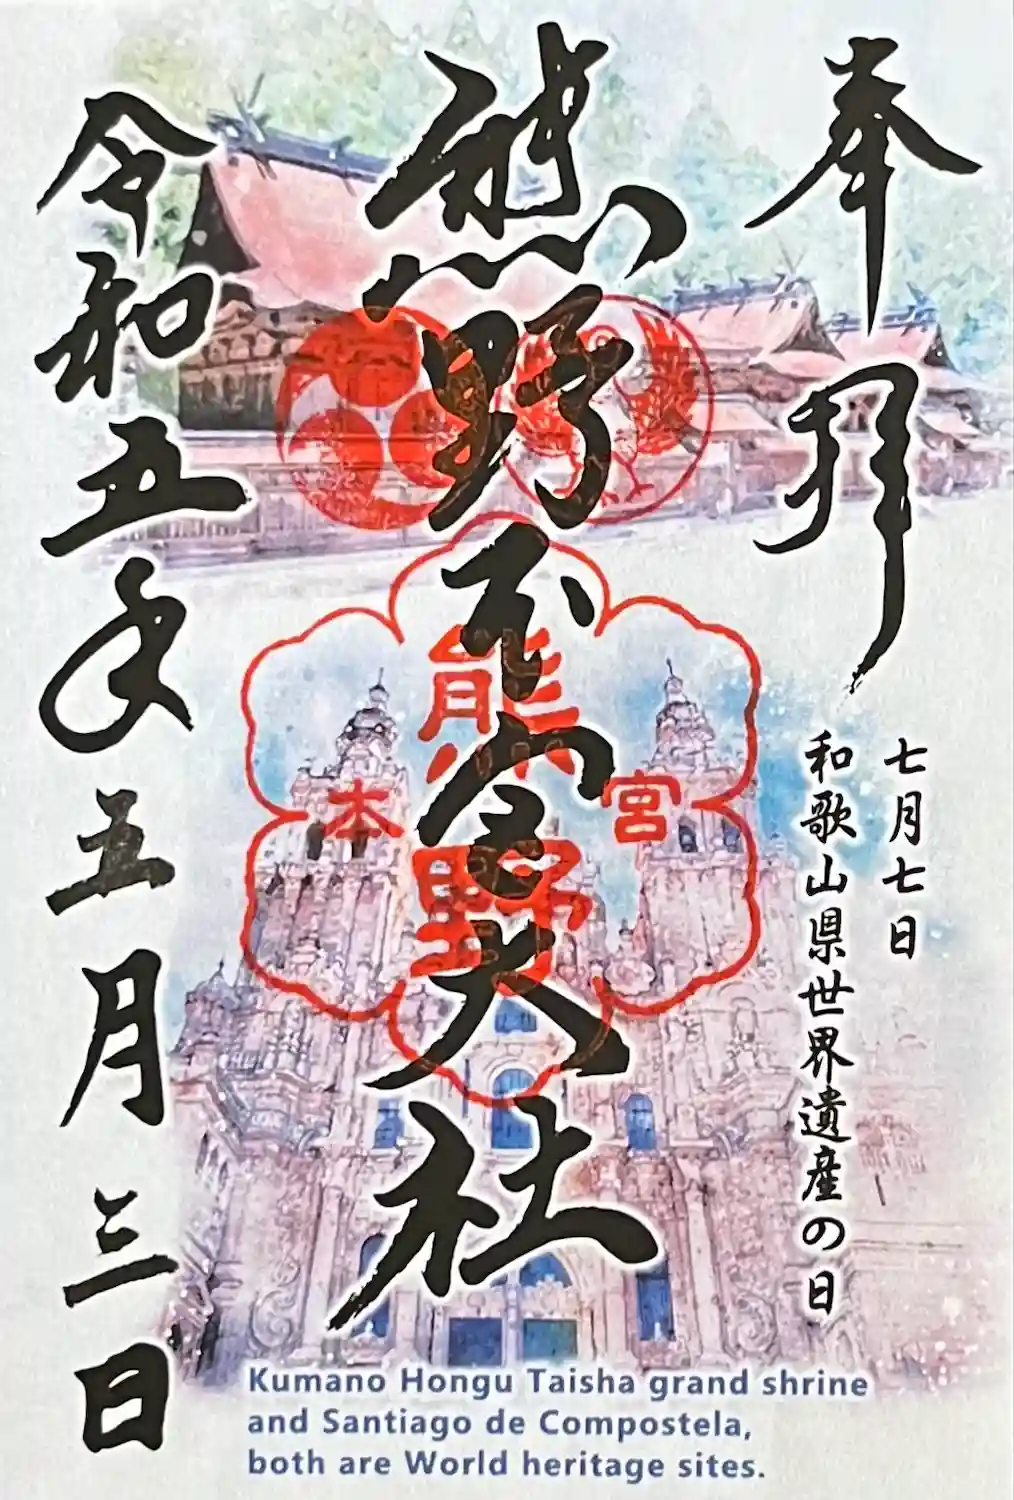 奉拝
七月七日
和歌山県世界遺産の日
熊野本宮大社
熊野
本宮
令和五年五月三日
Kumano Hongu Taisha grand shrine
and Santiago de Compostela,
both are World heritage sites.